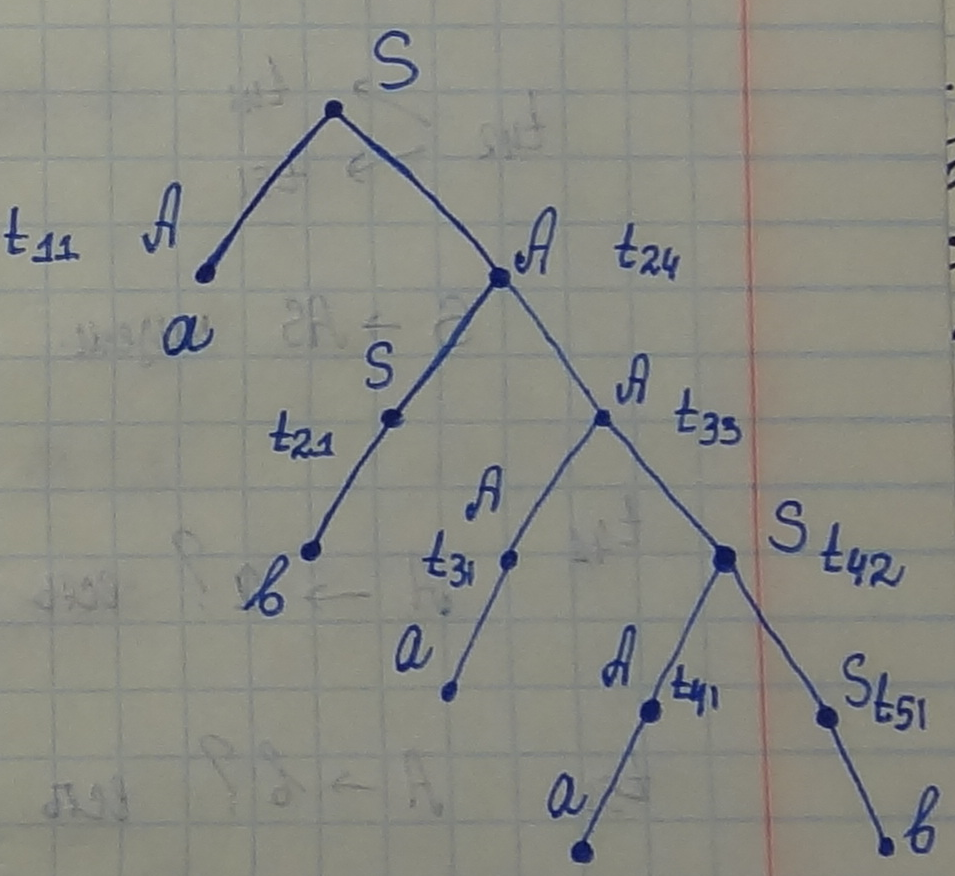 S
t₁₁ A A t₂₄
a
S A t₃₃
t₂₁
A
t₃₁ S t₄₂
b
a A t₄₁ S t₅₁
a b